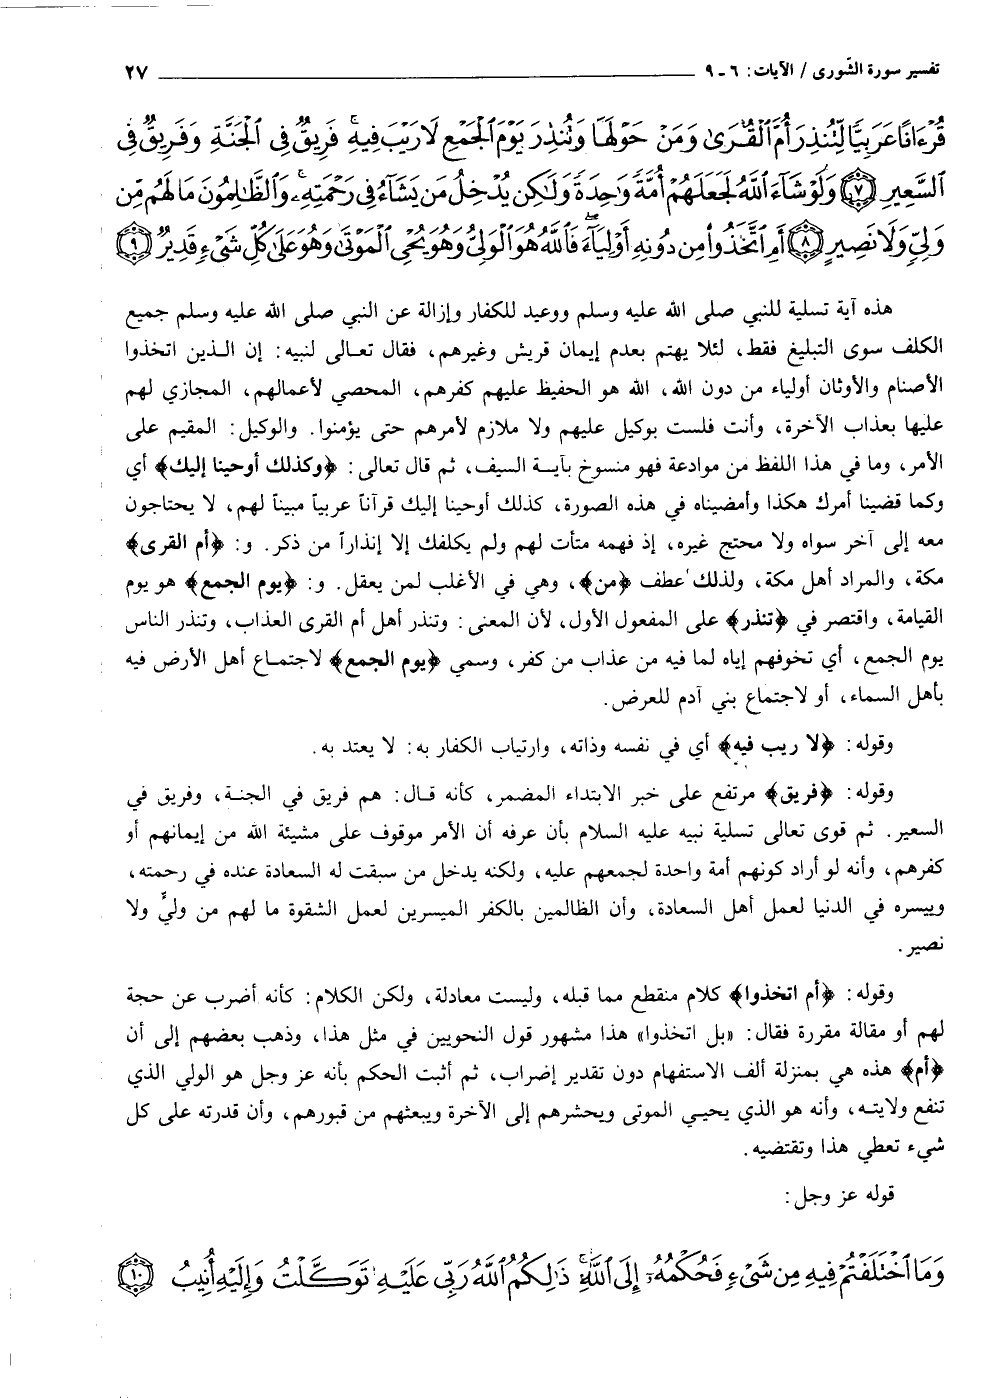 تفسير سورة الشّورى / الآيات: ٦ ـ ٩ ٢٧
قُرْءَانًا عَرَبِيًّا لِّتُنذِرَ أُمَّ ٱلْقُرَىٰ وَمَنْ حَوْلَهَا وَتُنذِرَ يَوْمَ ٱلْجَمْعِ لَا رَيْبَ فِيهِ ۚ فَرِيقٌ فِى ٱلْجَنَّةِ وَفَرِيقٌ فِى
ٱلسَّعِيرِ ﴿٧﴾ وَلَوْ شَآءَ ٱللَّهُ لَجَعَلَهُمْ أُمَّةً وَٰحِدَةً وَلَٰكِن يُدْخِلُ مَن يَشَآءُ فِى رَحْمَتِهِۦ ۚ وَٱلظَّٰلِمُونَ مَا لَهُم مِّن
وَلِىٍّ وَلَا نَصِيرٍ ﴿٨﴾ أَمِ ٱتَّخَذُوا۟ مِن دُونِهِۦٓ أَوْلِيَآءَ ۖ فَٱللَّهُ هُوَ ٱلْوَلِىُّ وَهُوَ يُحْىِ ٱلْمَوْتَىٰ وَهُوَ عَلَىٰ كُلِّ شَىْءٍ قَدِيرٌ ﴿٩﴾
هذه آية تسلية للنبي صلى الله عليه وسلم ووعيد للكفار وإزالة عن النبي صلى الله عليه وسلم جميع
الكلف سوى التبليغ فقط، لئلا يهتم بعدم إيمان قريش وغيرهم، فقال تعـالى لنبيه: إن الـذين اتخذوا
الأصنام والأوثان أولياء من دون الله، الله هو الحفيظ عليهم كفرهم، المحصي لأعمالهم، المجازي لهم
عليها بعذاب الآخرة، وأنت فلست بوكيل عليهم ولا ملازم لأمرهم حتى يؤمنوا. والوكيل: المقيم على
الأمر، وما في هذا اللفظ من موادعة فهو منسوخ بآيـة السيف، ثم قال تعالى: ﴿وكذلك أوحينا إليك﴾ أي
وكما قضينا أمرك هكذا وأمضيناه في هذه الصورة، كذلك أوحينا إليك قرآناً عربياً مبيناً لهم، لا يحتاجون
معه إلى آخر سواه ولا محتج غيره، إذ فهمه متأت لهم ولم يكلفك إلا إنذاراً من ذكر. و: ﴿أم القرى﴾
مكة، والمراد أهل مكة، ولذلك عطف ﴿من﴾، وهي في الأغلب لمن يعقل. و: ﴿يوم الجمع﴾ هو يوم
القيامة، واقتصر في ﴿تنذر﴾ على المفعول الأول، لأن المعنى: وتنذر أهل أم القرى العذاب، وتنذر الناس
يوم الجمع، أي تخوفهم إياه لما فيه من عذاب من كفر، وسمي ﴿يوم الجمع﴾ لاجتمـاع أهل الأرض فيه
بأهل السماء، أو لاجتماع بني آدم للعرض.
وقوله: ﴿لا ريب فيه﴾ أي في نفسه وذاته، وارتياب الكفار به: لا يعتد به.
وقوله: ﴿فريق﴾ مرتفع على خبر الابتداء المضمر، كأنه قـال: هم فريق في الجنـة، وفريق في
السعير. ثم قوى تعالى تسلية نبيه عليه السلام بأن عرفه أن الأمر موقوف على مشيئة الله من إيمانهم أو
كفرهم، وأنه لو أراد كونهم أمة واحدة لجمعهم عليه، ولكنه يدخل من سبقت له السعادة عنده في رحمته،
وييسره في الدنيا لعمل أهل السعادة، وأن الظالمين بالكفر الميسرين لعمل الشقوة ما لهم من وليٍّ ولا
نصير.
وقوله: ﴿أم اتخذوا﴾ كلام منقطع مما قبله، وليست معادلة، ولكن الكلام: كأنه أضرب عن حجة
لهم أو مقالة مقررة فقال: «بل اتخذوا» هذا مشهور قول النحويين في مثل هذا، وذهب بعضهم إلى أن
﴿أم﴾ هذه هي بمنزلة ألف الاستفهام دون تقدير إضراب، ثم أثبت الحكم بأنه عز وجل هو الولي الذي
تنفع ولايتـه، وأنه هو الذي يحيـي الموتى ويحشرهم إلى الآخرة ويبعثهم من قبورهم، وأن قدرته على كل
شيء تعطي هذا وتقتضيه.
قوله عز وجل:
وَمَا ٱخْتَلَفْتُمْ فِيهِ مِن شَىْءٍ فَحُكْمُهُۥٓ إِلَى ٱللَّهِ ۚ ذَٰلِكُمُ ٱللَّهُ رَبِّى عَلَيْهِ تَوَكَّلْتُ وَإِلَيْهِ أُنِيبُ ﴿١٠﴾